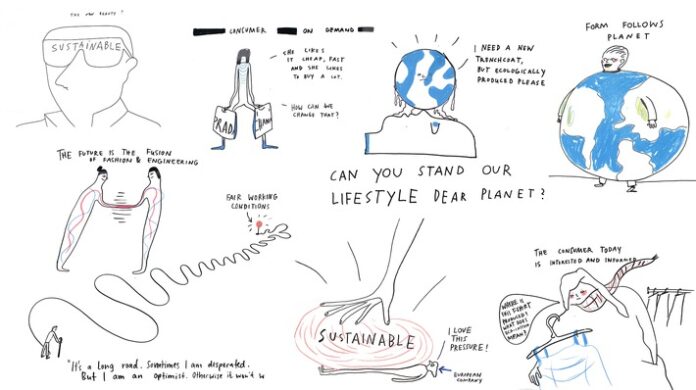 THE NEW BEAUTY"
SUSTAINABLE
CONSUMER ON DEMAND
SHE LIKES
IT CHEAP, FAST
AND SHE LIKES
TO BUY A LOT.
HOW CAN WE
CHANGE THAT?
PRADA
I NEED A NEW
TRENCHCOAT,
BUT ECOLOGICALLY
PRODUCED PLEASE
FORM FOLLOWS
PLANET
THE FUTURE IS THE FUSION
OF FASHION & ENGINEERING
CAN YOU STAND OUR
LIFESTYLE DEAR PLANET?
FAIR WORKING
CONDITIONS
"It's a long road. Sometimes I am desperated.
But I am an optimist. Otherwise it won't w
SUSTAINABLE
I LOVE
THIS
PRESSURE!
EUROPEAN
COMPANY
THE CONSUMER TODAY
IS INTERESTED AND INFORMED
WHERE IS
THIS T-SHIRT
PRODUCED?
WHAT DOES
MEAN?